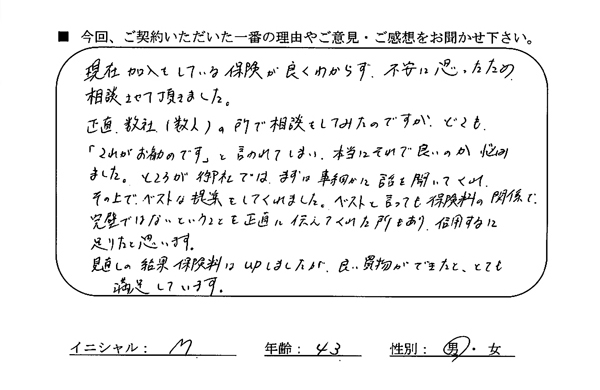 ■ 今回、ご契約いただいた一番の理由やご意見・ご感想をお聞かせ下さい。
現在加入をしている保険が良くわからず、不安に思ったため
相談させて頂きました。
正直、数社(数人)の所で相談をしてみたのですが、どこも、
「これがお勧めです」と言われてしまい、本当にそれで良いのか悩み
ました。ところが御社では、まずは事細かに話を聞いてくれ、
その上でベストな提案をしてくれました。ベストと言っても保険料の関係で、
完璧ではないということも正直に伝えてくれた所もあり、信用するに
足りたと思います。
見直しの結果保険料はupしましたが、良い買物ができたと、とても
満足しています。
イニシャル: M 年齢: 43 性別: 男・女